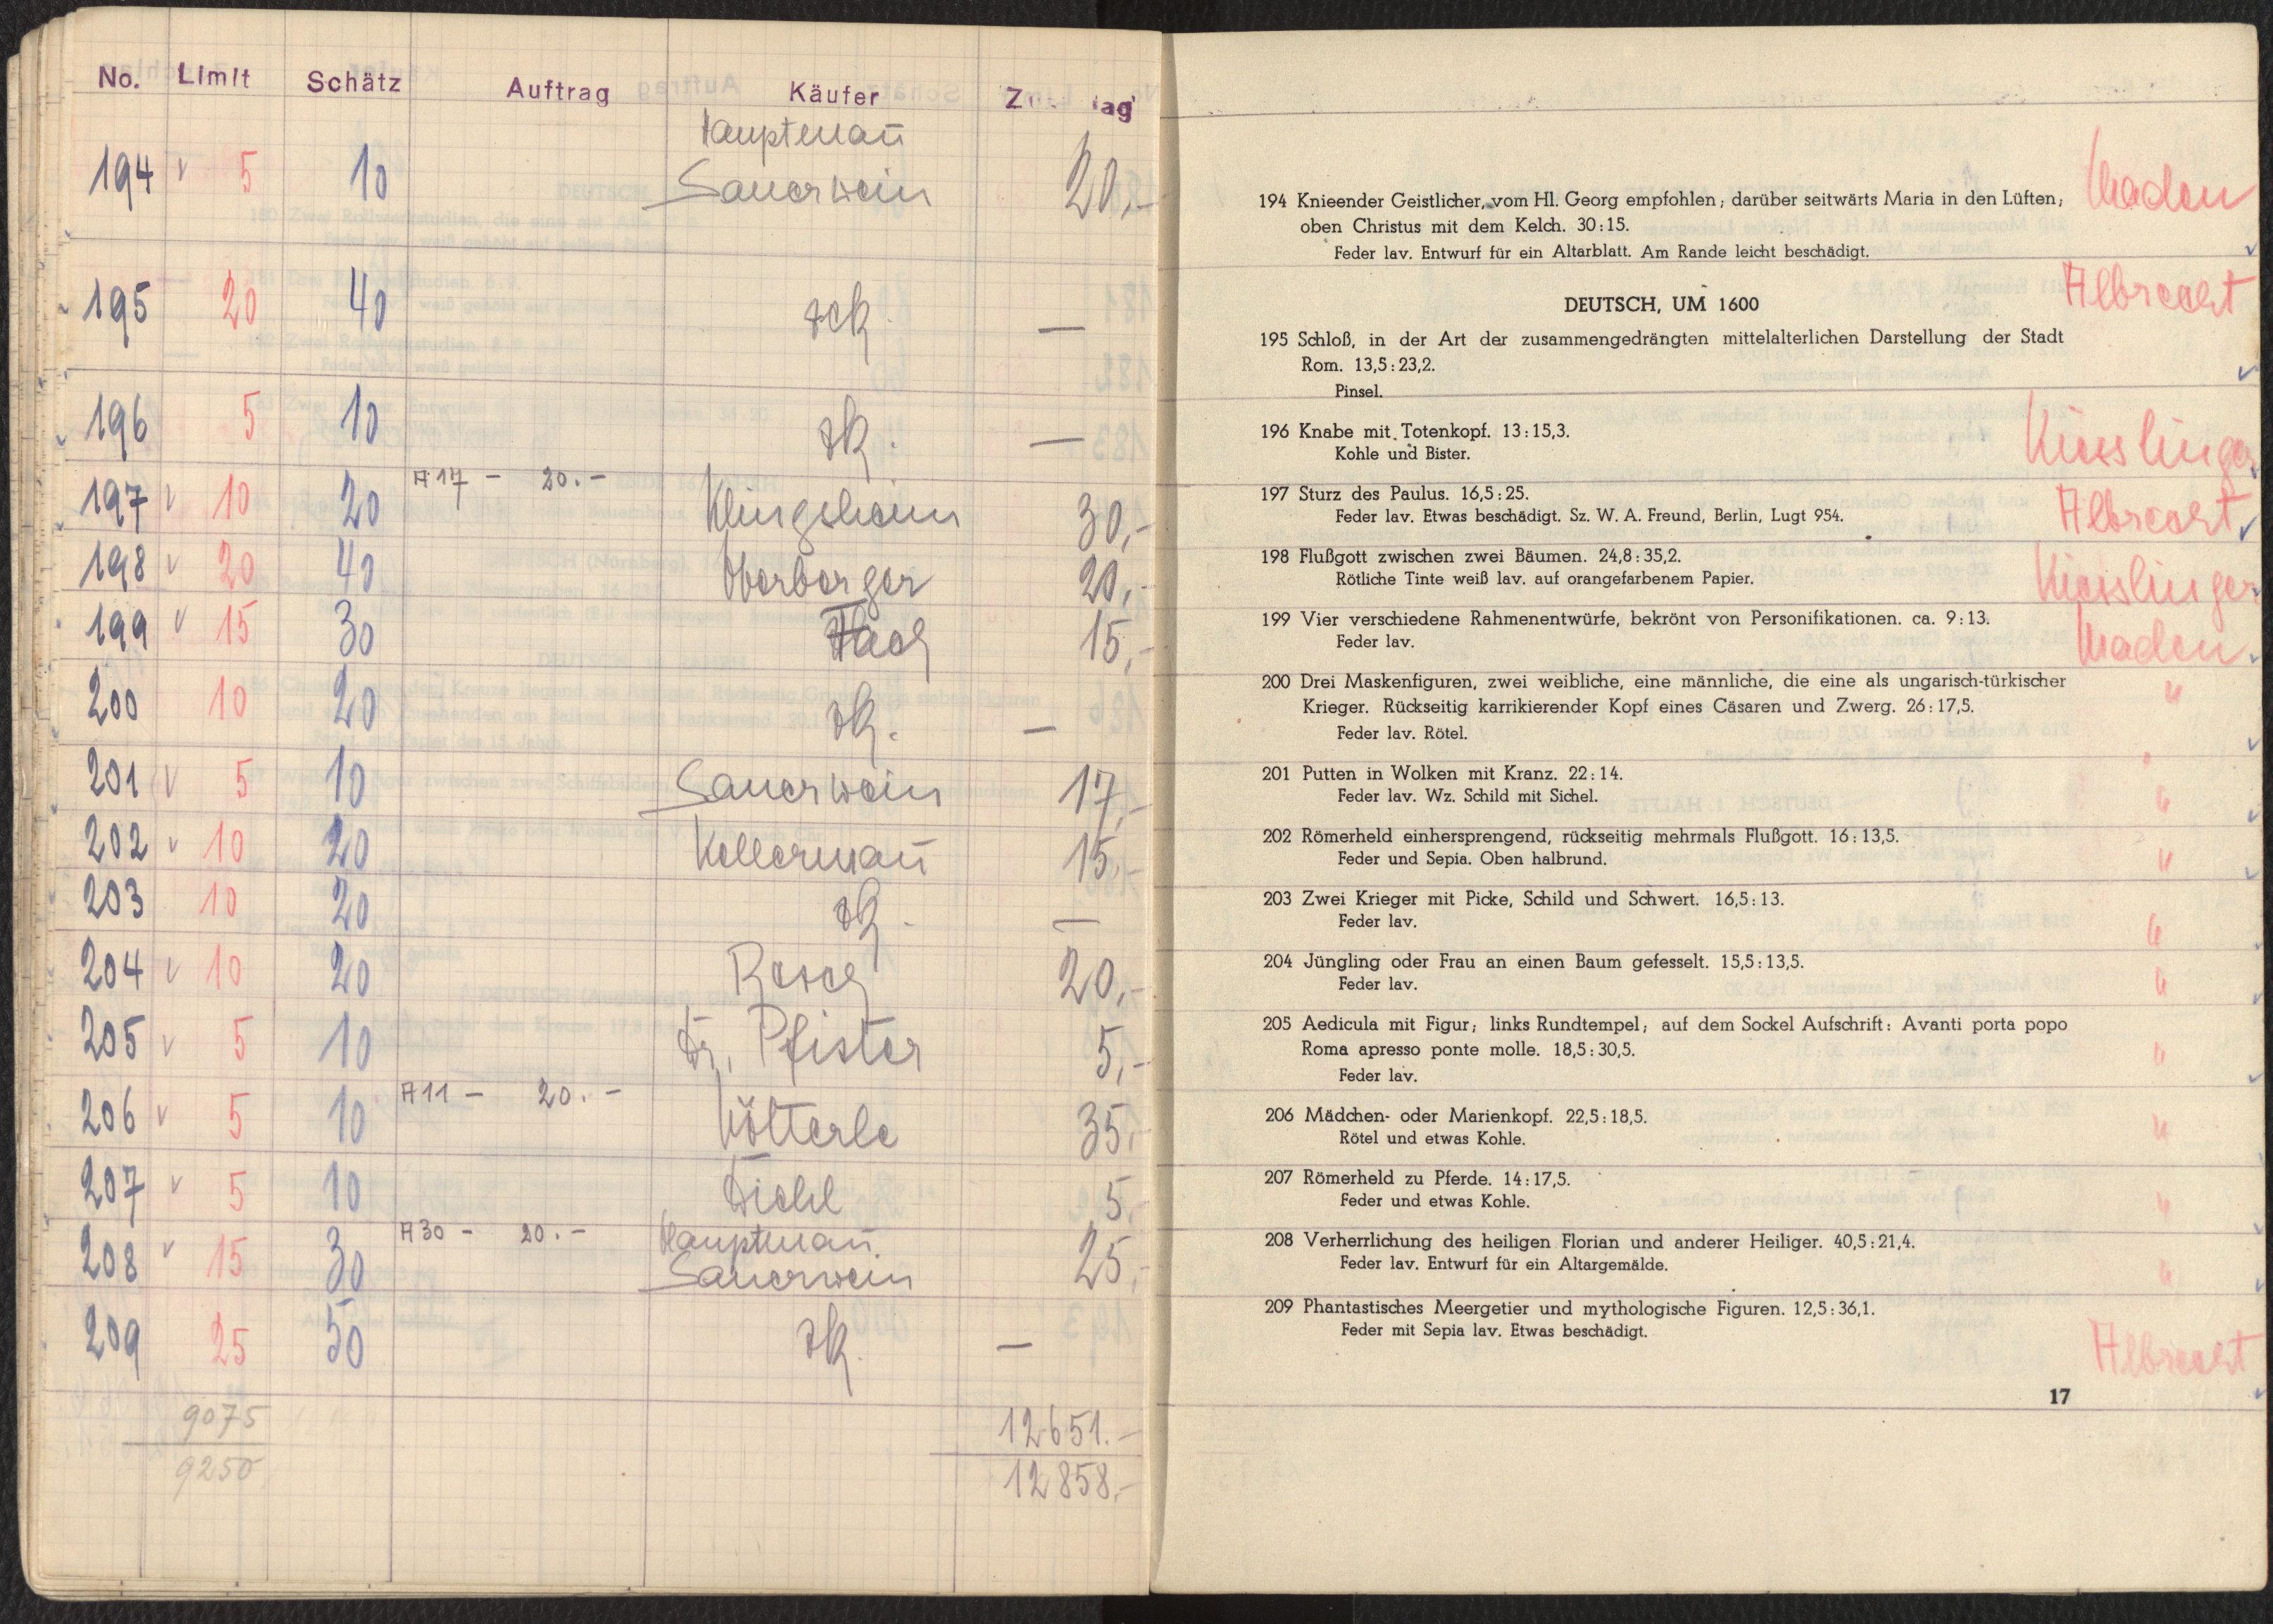 No. Limit Schätz Auftrag Käufer Z ag
Hauptmañ
194 v 5 10 Sauerwein 20,-
195 20 40 zk. —
196 5 10 zk. —
A17 - 20.-
197 v 10 20 Klingsheim 30,-
198 v 20 40 Oberberger 20,-
199 v 15 30 15,-
200 10 20 zk. —
201 v 5 10 Sauerwein 17,-
202 v 10 20 Kellermañ 15,-
203 10 20 zk. —
204 v 10 20 20,-
205 v 5 10 Dr. Pfister 5,-
A11 - 20.-
206 v 5 10 Kötterle 35,-
207 v 5 10 Diehl 5,-
A30 - 20.- Hauptmañ
208 v 15 30 Sauerwein 25,-
209 25 50 zk. —
9075 12651.-
9250 12858,-
194 Knieender Geistlicher, vom Hl. Georg empfohlen; darüber seitwärts Maria in den Lüften;
oben Christus mit dem Kelch. 30:15.
Feder lav. Entwurf für ein Altarblatt. Am Rande leicht beschädigt.
Albrecht
DEUTSCH, UM 1600
195 Schloß, in der Art der zusammengedrängten mittelalterlichen Darstellung der Stadt
Rom. 13,5:23,2.
Pinsel.
196 Knabe mit Totenkopf. 13:15,3. Kiesslinger
Kohle und Bister.
197 Sturz des Paulus. 16,5:25. Albrecht
Feder lav. Etwas beschädigt. Sz. W. A. Freund, Berlin, Lugt 954.
198 Flußgott zwischen zwei Bäumen. 24,8:35,2. Kiesslinger
Rötliche Tinte weiß lav. auf orangefarbenem Papier.
199 Vier verschiedene Rahmenentwürfe, bekrönt von Personifikationen. ca. 9:13.
Feder lav.
200 Drei Maskenfiguren, zwei weibliche, eine männliche, die eine als ungarisch-türkischer "
Krieger. Rückseitig karrikierender Kopf eines Cäsaren und Zwerg. 26:17,5.
Feder lav. Rötel.
201 Putten in Wolken mit Kranz. 22:14. "
Feder lav. Wz. Schild mit Sichel.
202 Römerheld einhersprengend, rückseitig mehrmals Flußgott. 16:13,5. "
Feder und Sepia. Oben halbrund.
203 Zwei Krieger mit Picke, Schild und Schwert. 16,5:13. "
Feder lav.
204 Jüngling oder Frau an einen Baum gefesselt. 15,5:13,5. "
Feder lav.
205 Aedicula mit Figur; links Rundtempel; auf dem Sockel Aufschrift: Avanti porta popo
Roma apresso ponte molle. 18,5:30,5. "
Feder lav.
206 Mädchen- oder Marienkopf. 22,5:18,5. "
Rötel und etwas Kohle.
207 Römerheld zu Pferde. 14:17,5. "
Feder und etwas Kohle.
208 Verherrlichung des heiligen Florian und anderer Heiliger. 40,5:21,4. "
Feder lav. Entwurf für ein Altargemälde.
209 Phantastisches Meergetier und mythologische Figuren. 12,5:36,1.
Feder mit Sepia lav. Etwas beschädigt. Albrecht
17